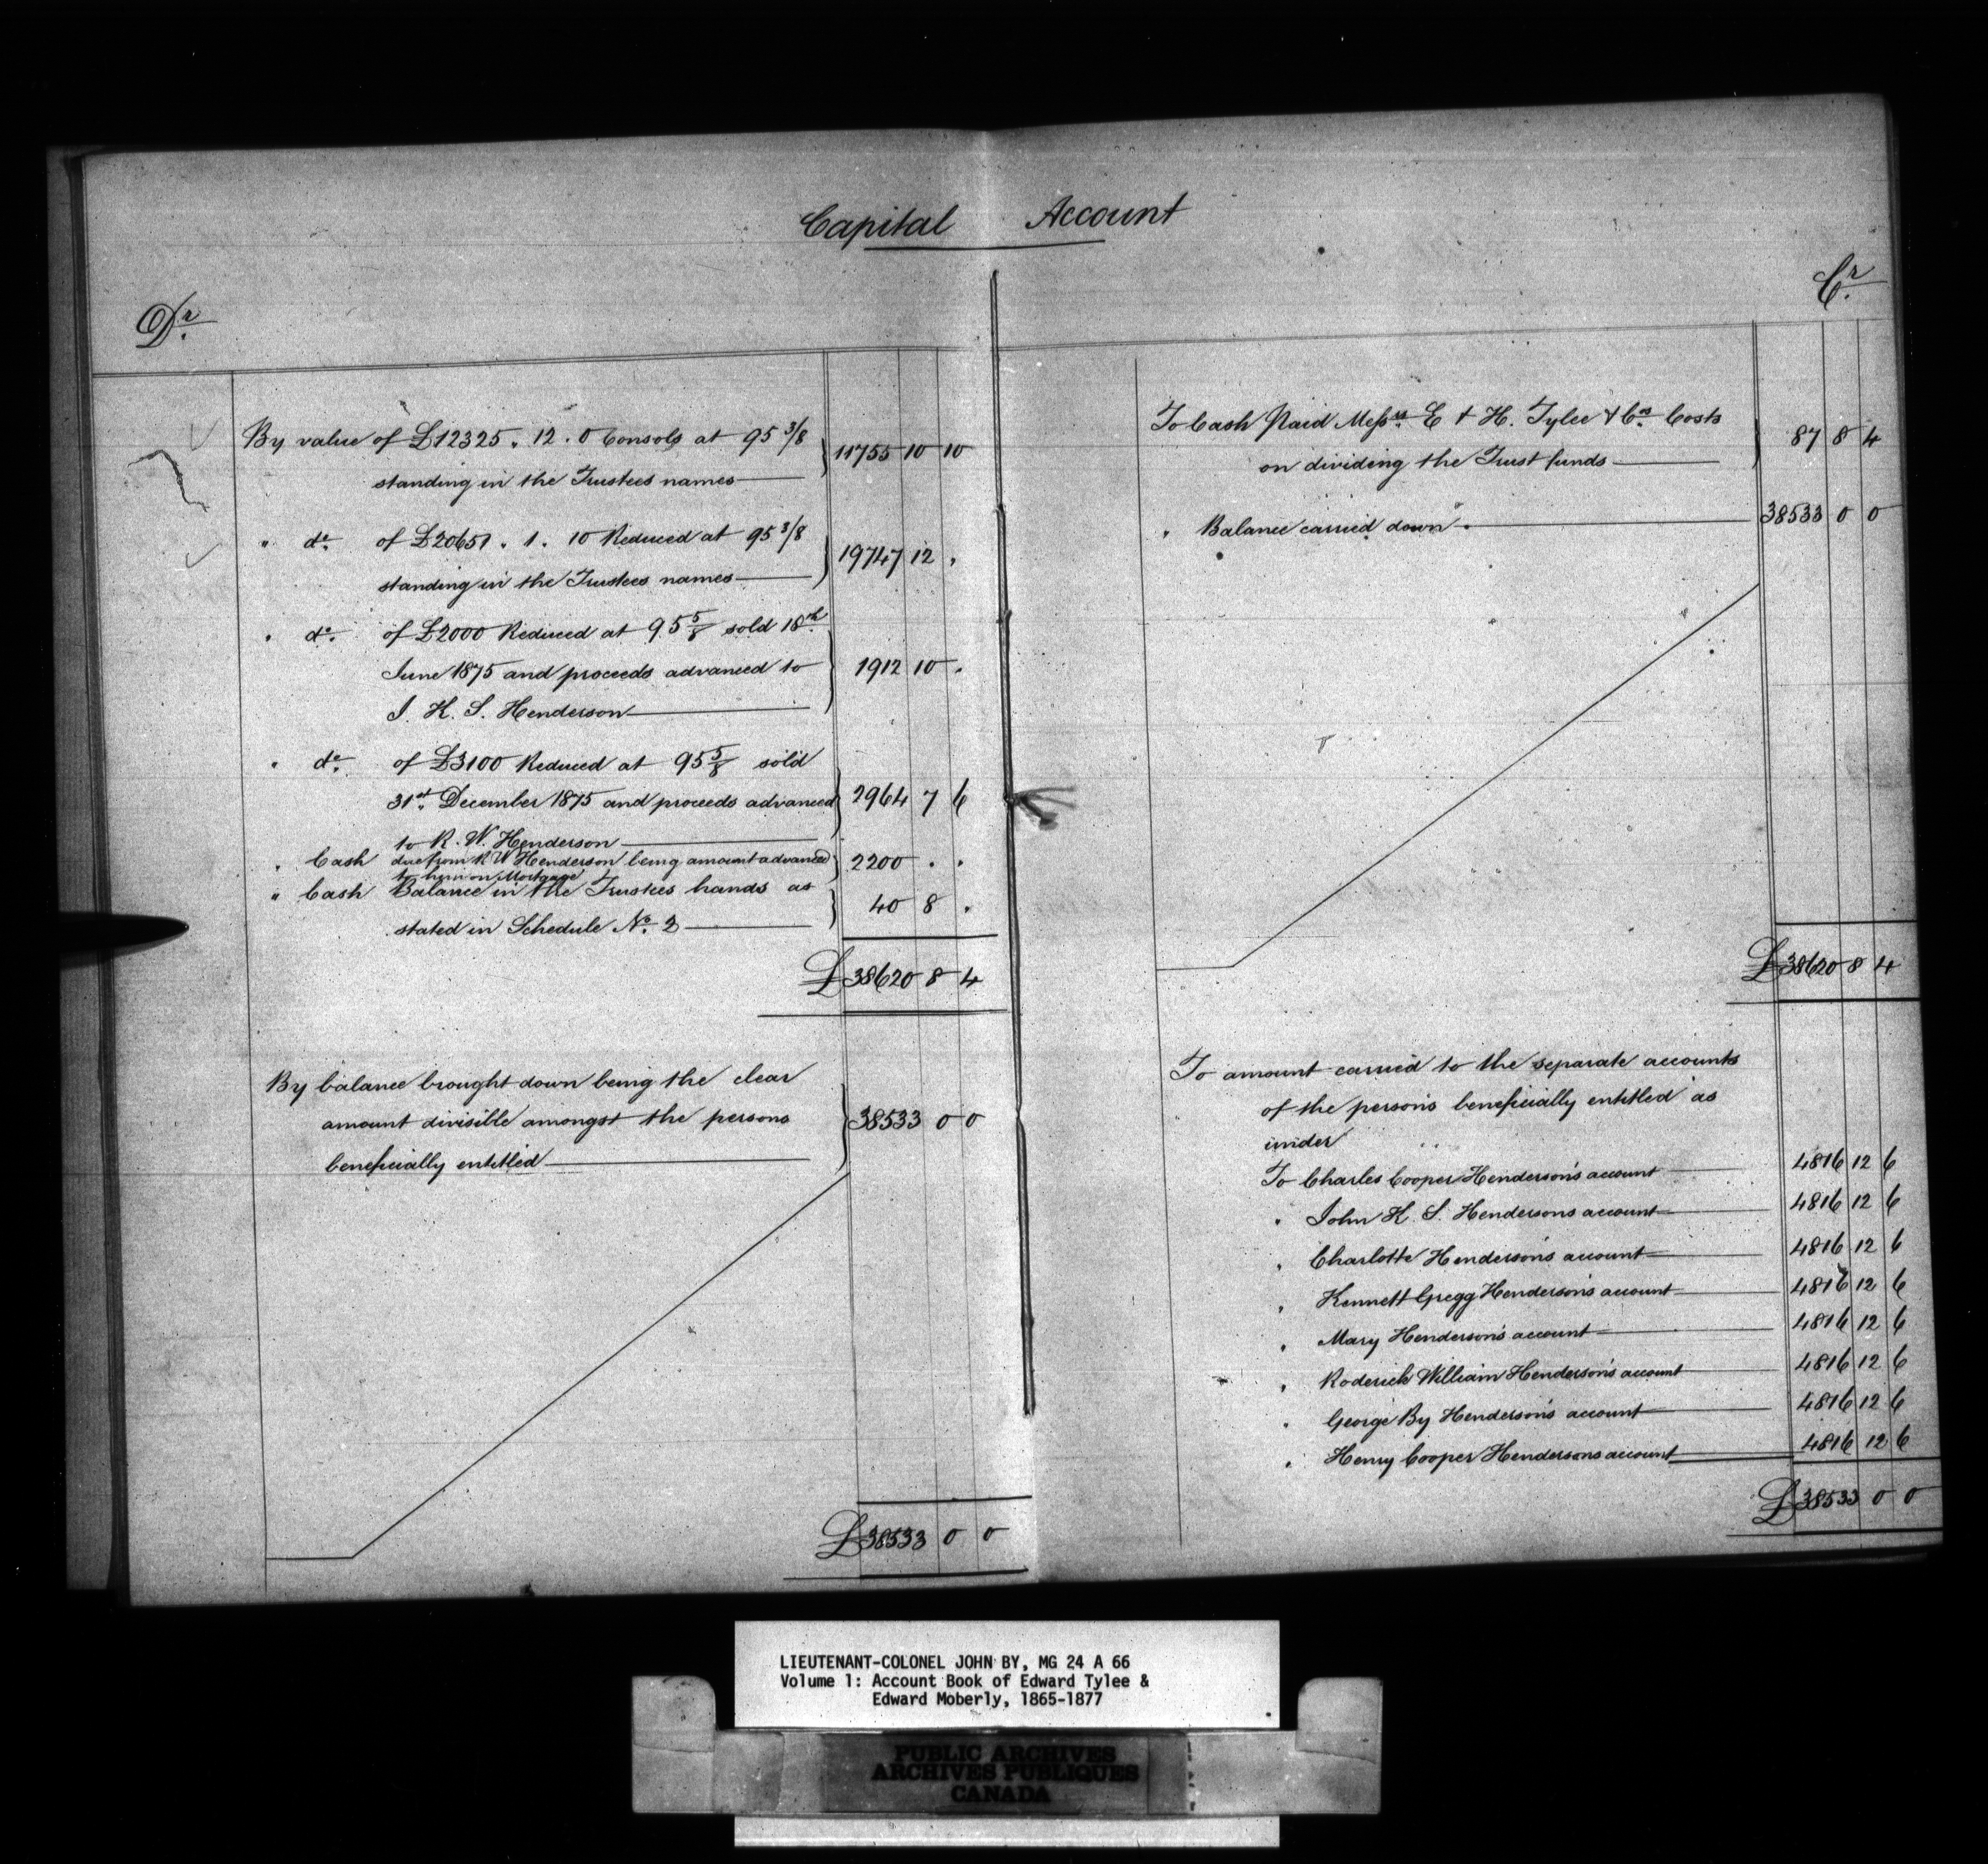 Capital Account
Dr.
By value of £12325 . 12 . 0 Consols at 95 3/8
standing in the Trustees names 11755 10 10
" do. of £20651 . 1 . 10 Reduced at 95 3/8
standing in the Trustees names 19747 12 .
" do. of £2000 Reduced at 95 5/8 sold 18th
June 1875 and proceeds advanced to 1912 10 .
J. K. S. Henderson
" do. of £3100 Reduced at 95 5/8 sold
31st December 1875 and proceeds advanced 2964 7 6
to R. W. Henderson
" Cash due from R W Henderson being amount advanced 2200 . .
to him on Mortgage
" Cash Balance in the Trustees hands as
stated in Schedule No. 2 40 8 .
£38620 8 4
By balance brought down being the clear
amount divisible amongst the persons 38533 0 0
beneficially entitled
£38533 0 0
Cr.
To Cash Paid Messrs. E & H. Tylee & Cos. Costs
on dividing the Trust funds 87 8 4
" Balance carried down 38533 0 0
£38620 8 4
To amount carried to the separate accounts
of the persons beneficially entitled as
under
To Charles Cooper Henderson's account 4816 12 6
" John K. S. Hendersons account 4816 12 6
" Charlotte Henderson's account 4816 12 6
" Kennett Gregg Henderson's account 4816 12 6
" Mary Henderson's account 4816 12 6
" Roderick William Henderson's account 4816 12 6
" George By Henderson's account 4816 12 6
" Henry Cooper Hendersons account 4816 12 6
£38533 0 0
LIEUTENANT-COLONEL JOHN BY, MG 24 A 66
Volume 1: Account Book of Edward Tylee &
Edward Moberly, 1865-1877
PUBLIC ARCHIVES
ARCHIVES PUBLIQUES
CANADA